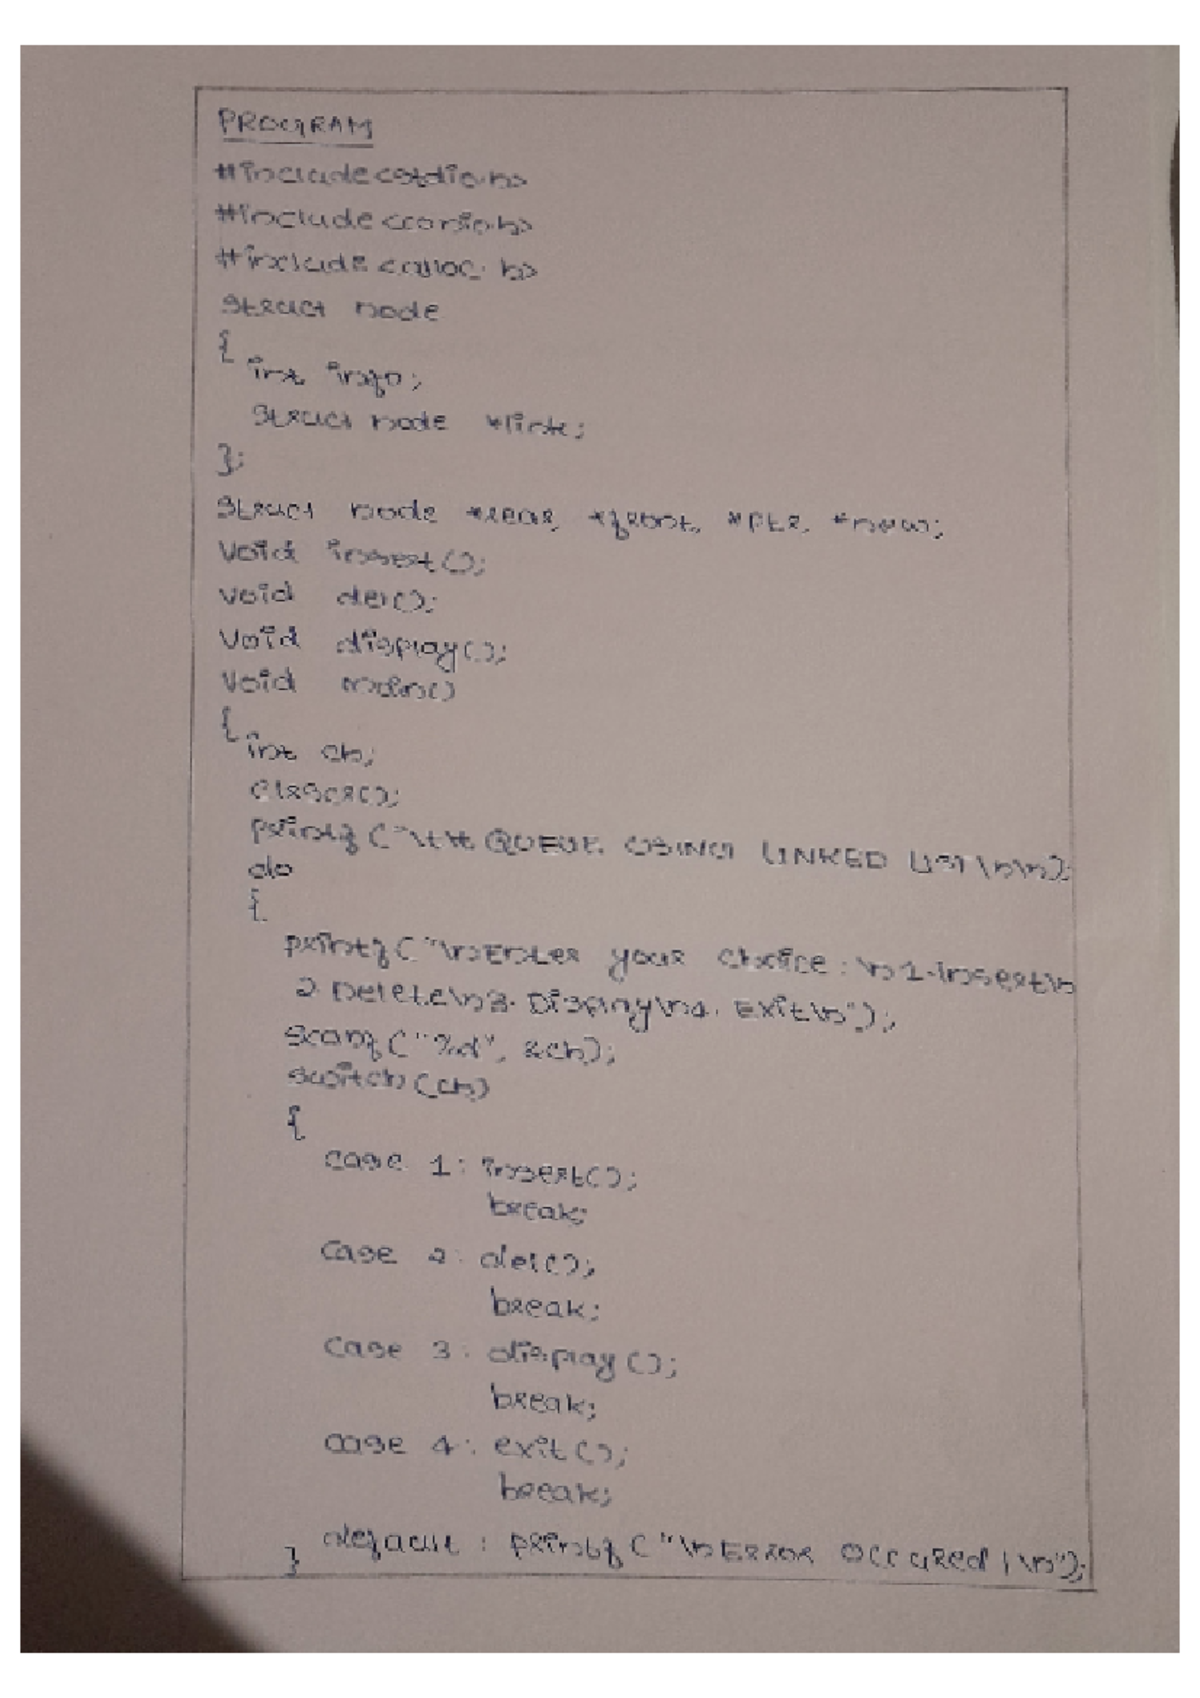 PROGRAM
#include<stdio.h>
#include<conio.h>
#include<alloc.h>
struct node
{
int info;
struct node *link;
};
struct node *rear, *front, *ptr, *new;
void insert();
void del();
void display();
void main()
{
int ch;
clrscr();
printf("\t\t QUEUE USING LINKED LIST \n\n);
do
{
printf("\nEnter your choice : \n1.Insert\n
2.Delete\n3.Display\n4.Exit\n");
scanf("%d", &ch);
switch(ch)
{
case 1: insert();
break;
case 2: del();
break;
case 3: display();
break;
case 4: exit();
break;
default : printf("\nError occured!\n");
}